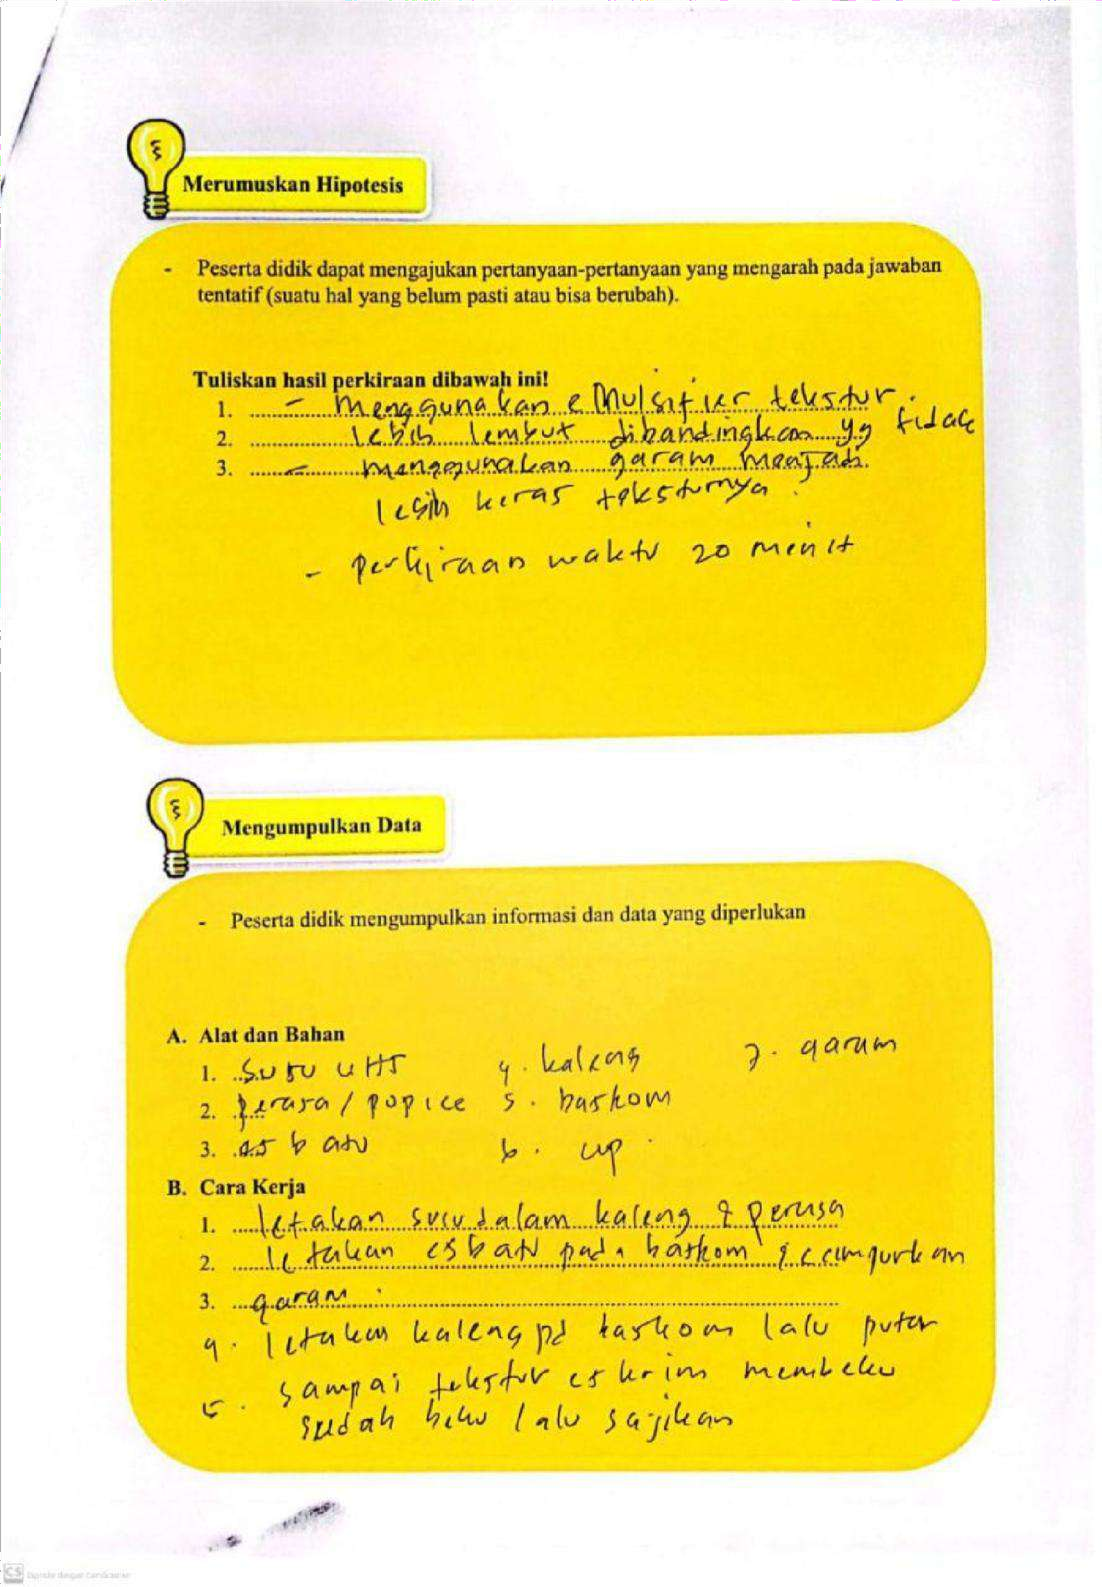 Merumuskan Hipotesis
- Peserta didik dapat mengajukan pertanyaan-pertanyaan yang mengarah pada jawaban
tentatif (suatu hal yang belum pasti atau bisa berubah).
Tuliskan hasil perkiraan dibawah ini!
1. - menggunakan emulsifier tekstur.
2. lebih lembut dibandingkan yg tidak
3. - menggunakan garam menjadi
lebih keras teksturnya.
- perkiraan waktu 20 menit
Mengumpulkan Data
- Peserta didik mengumpulkan informasi dan data yang diperlukan
A. Alat dan Bahan
1. Susu UHT 4. kaleng 7. garam
2. perasa / popice 5. baskom
3. es batu 6. cup
B. Cara Kerja
1. letakan susu dalam kaleng & perasa
2. letakan es batu pada baskom & campurkan
3. garam.
4. letakan kaleng pd baskom lalu putar
sampai tekstur es krim membeku
5. sudah beku lalu sajikan
CS Dipindai dengan CamScanner